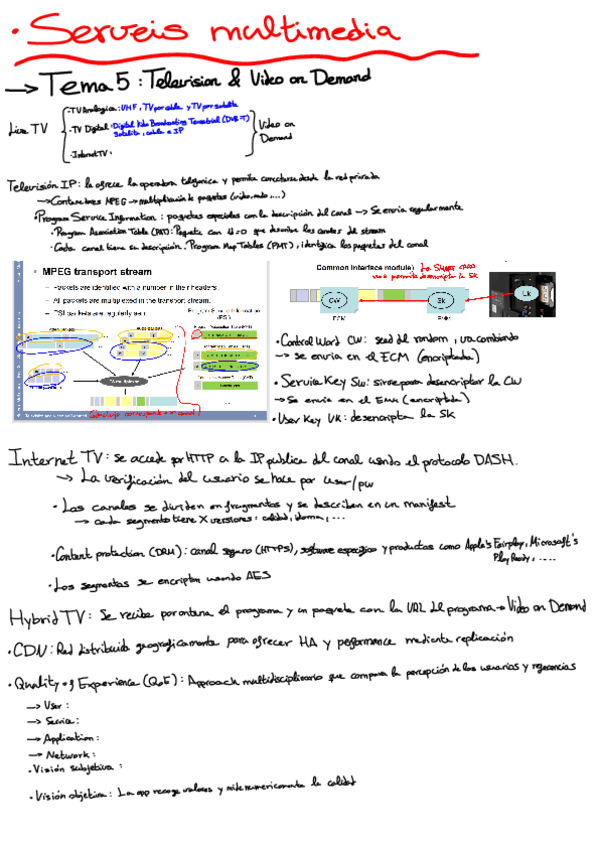 • Serveis multimedia
→ Tema 5: Television & Video on Demand
Live TV
- TV Analogica: VHF, TV por cable y TV por satelite
- TV Digital: Digital Video Broadcasting Terrestrial (DVB-T)
Satelite, cable e IP
- Internet TV
Video on
Demand
Televisión IP: la ofrece la operadora telefonica y permite conectarse desde la red privada
→ Contenedores MPEG → multiplicación de paquetes (video, audio, ...)
• Program Service Information: paquetes especiales con la descripción del canal → Se envia regularmente
• Program Association Table (PAT): Paquete con id=0 que describe los canales del stream
• Cada canal tiene su descripción. Program Map Tables (PMT), identifica los paquetes del canal
• MPEG transport stream
– Packets are identified with a number in their headers.
– All packets are multiplexed in the transport stream.
– PSI packets are regularly sent.
Common Interface module)
La SMART CARD
nos permite desencriptar la SK
CW
Sk
Uk
ECM
EMM
• Control Word CW: seed del random, va cambiando
→ se envia en el ECM (encriptada)
• Service Key SW: sirve para desencriptar la CW
→ Se envia en el EMM (encriptada)
• User Key UK: desencripta la SK
Internet TV: se accede por HTTP a la IP publica del canal usando el protocolo DASH.
→ La verificación del usuario se hace por user/pw
• Los canales se dividen en fragmentos y se describen en un manifest
→ cada segmento tiene X versiones: calidad, idioma, ...
• Content protection (DRM): canal seguro (HTTPS), software especifico y productos como Apple's Fairplay, Microsoft's
Play Ready, ....
• Los segmentos se encriptan usando AES
Hybrid TV: Se recibe por antena el programa y un paquete con la URL del programa → Video on Demand
• CDN: Red distribuida geograficamente para ofrecer HA y performance mediante replicación
• Quality of Experience (QoE): Approach multidisciplinario que compara la percepción de los usuarios y
→ User:
→ Service:
→ Application:
→ Network:
• Visión subjetiva:
• Visión objetiva: La app recoge valores y mide numericamente la calidad